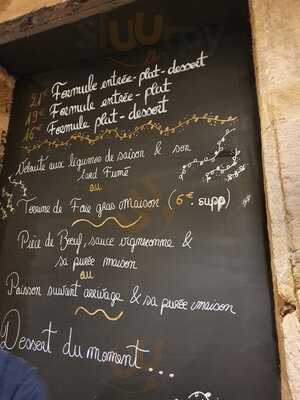 21€ Formule entrée-plat-dessert
19€ Formule entrée-plat
16€ Formule plat-dessert
Velouté aux légumes de saison & son
lard Fumé
ou
Terrine de Foie gras maison (6€ supp)
Pièce de Bœuf, sauce vigneronne &
sa purée maison
ou
Poisson suivant arrivage & sa purée maison
Dessert du moment...